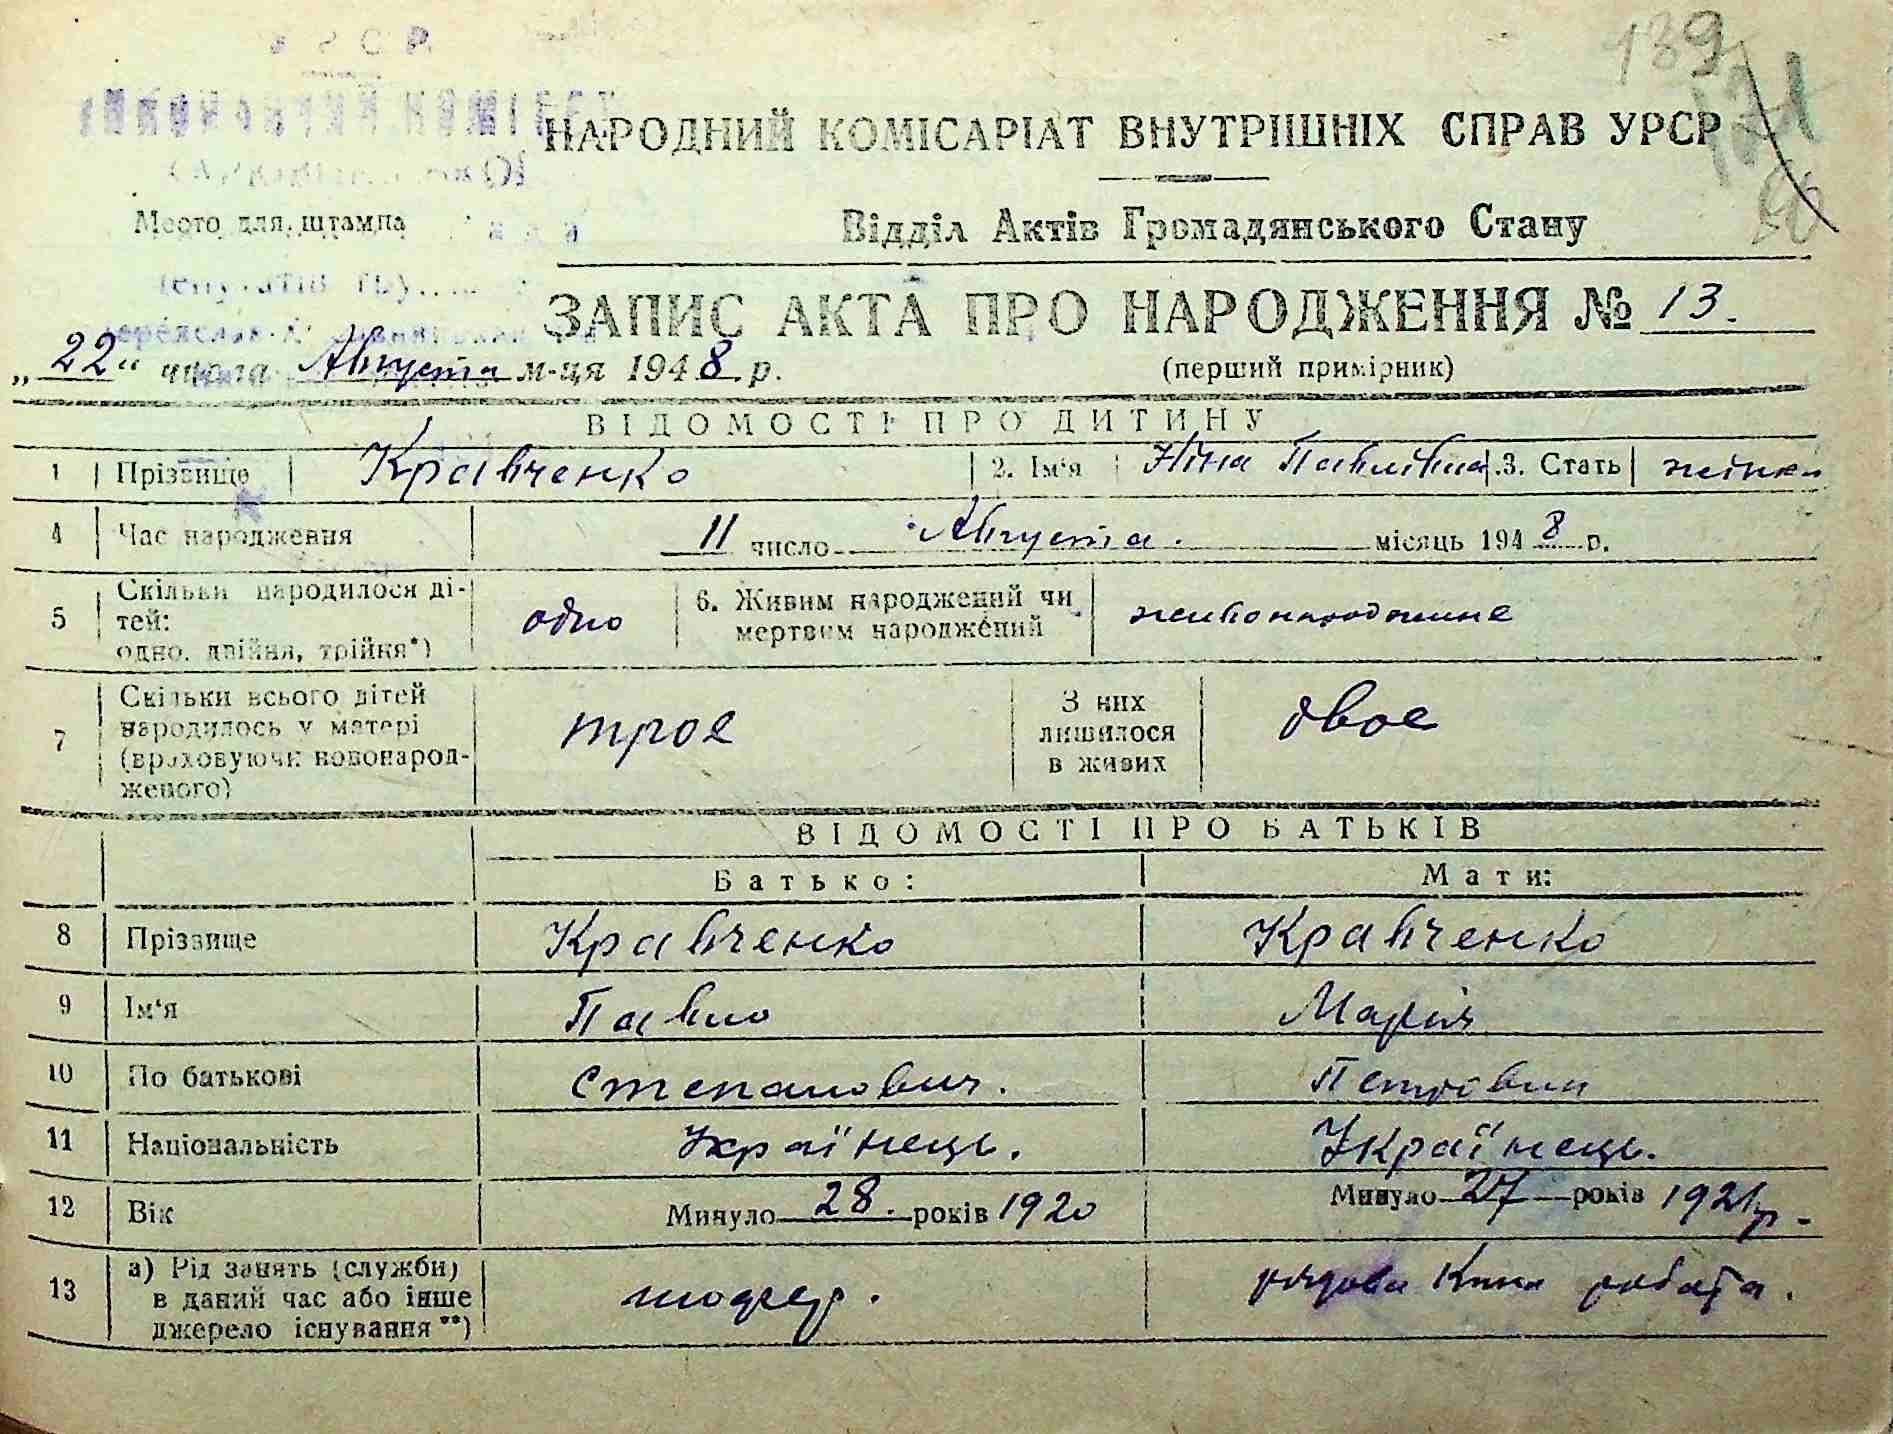 139
121
НАРОДНИЙ КОМІСАРІАТ ВНУТРІШНІХ СПРАВ УРСР
Место для штампа
Відділ Актів Громадянського Стану
ЗАПИС АКТА ПРО НАРОДЖЕННЯ № 13.
„22“ числа Августа м-ця 1948 р.
(перший примірник)
ВІДОМОСТІ ПРО ДИТИНУ
1 Прізвище Кравченко 2. Ім'я Ніна Павлівна 3. Стать жінки
4 Час народження 11 число Августа. місяць 1948 р.
5 Скільки народилося ді-
тей:
одно, двійня, трійня*) одно 6. Живим народжений чи
мертвим народжений живонароджене
7 Скільки всього дітей
народилось у матері
(враховуючи новонарод-
женого) троє З них
лишилося
в живих двоє
ВІДОМОСТІ ПРО БАТЬКІВ
Батько: Мати:
8 Прізвище Кравченко Кравченко
9 Ім'я Павло Марія
10 По батькові Степанович. Петрівни
11 Національність Українець. Українець.
12 Вік Минуло 28. років 1920 Минуло 27 років 1921 р.
13 а) Рід занять (служби)
в даний час або інше
джерело існування**) шофер. рядова робота.